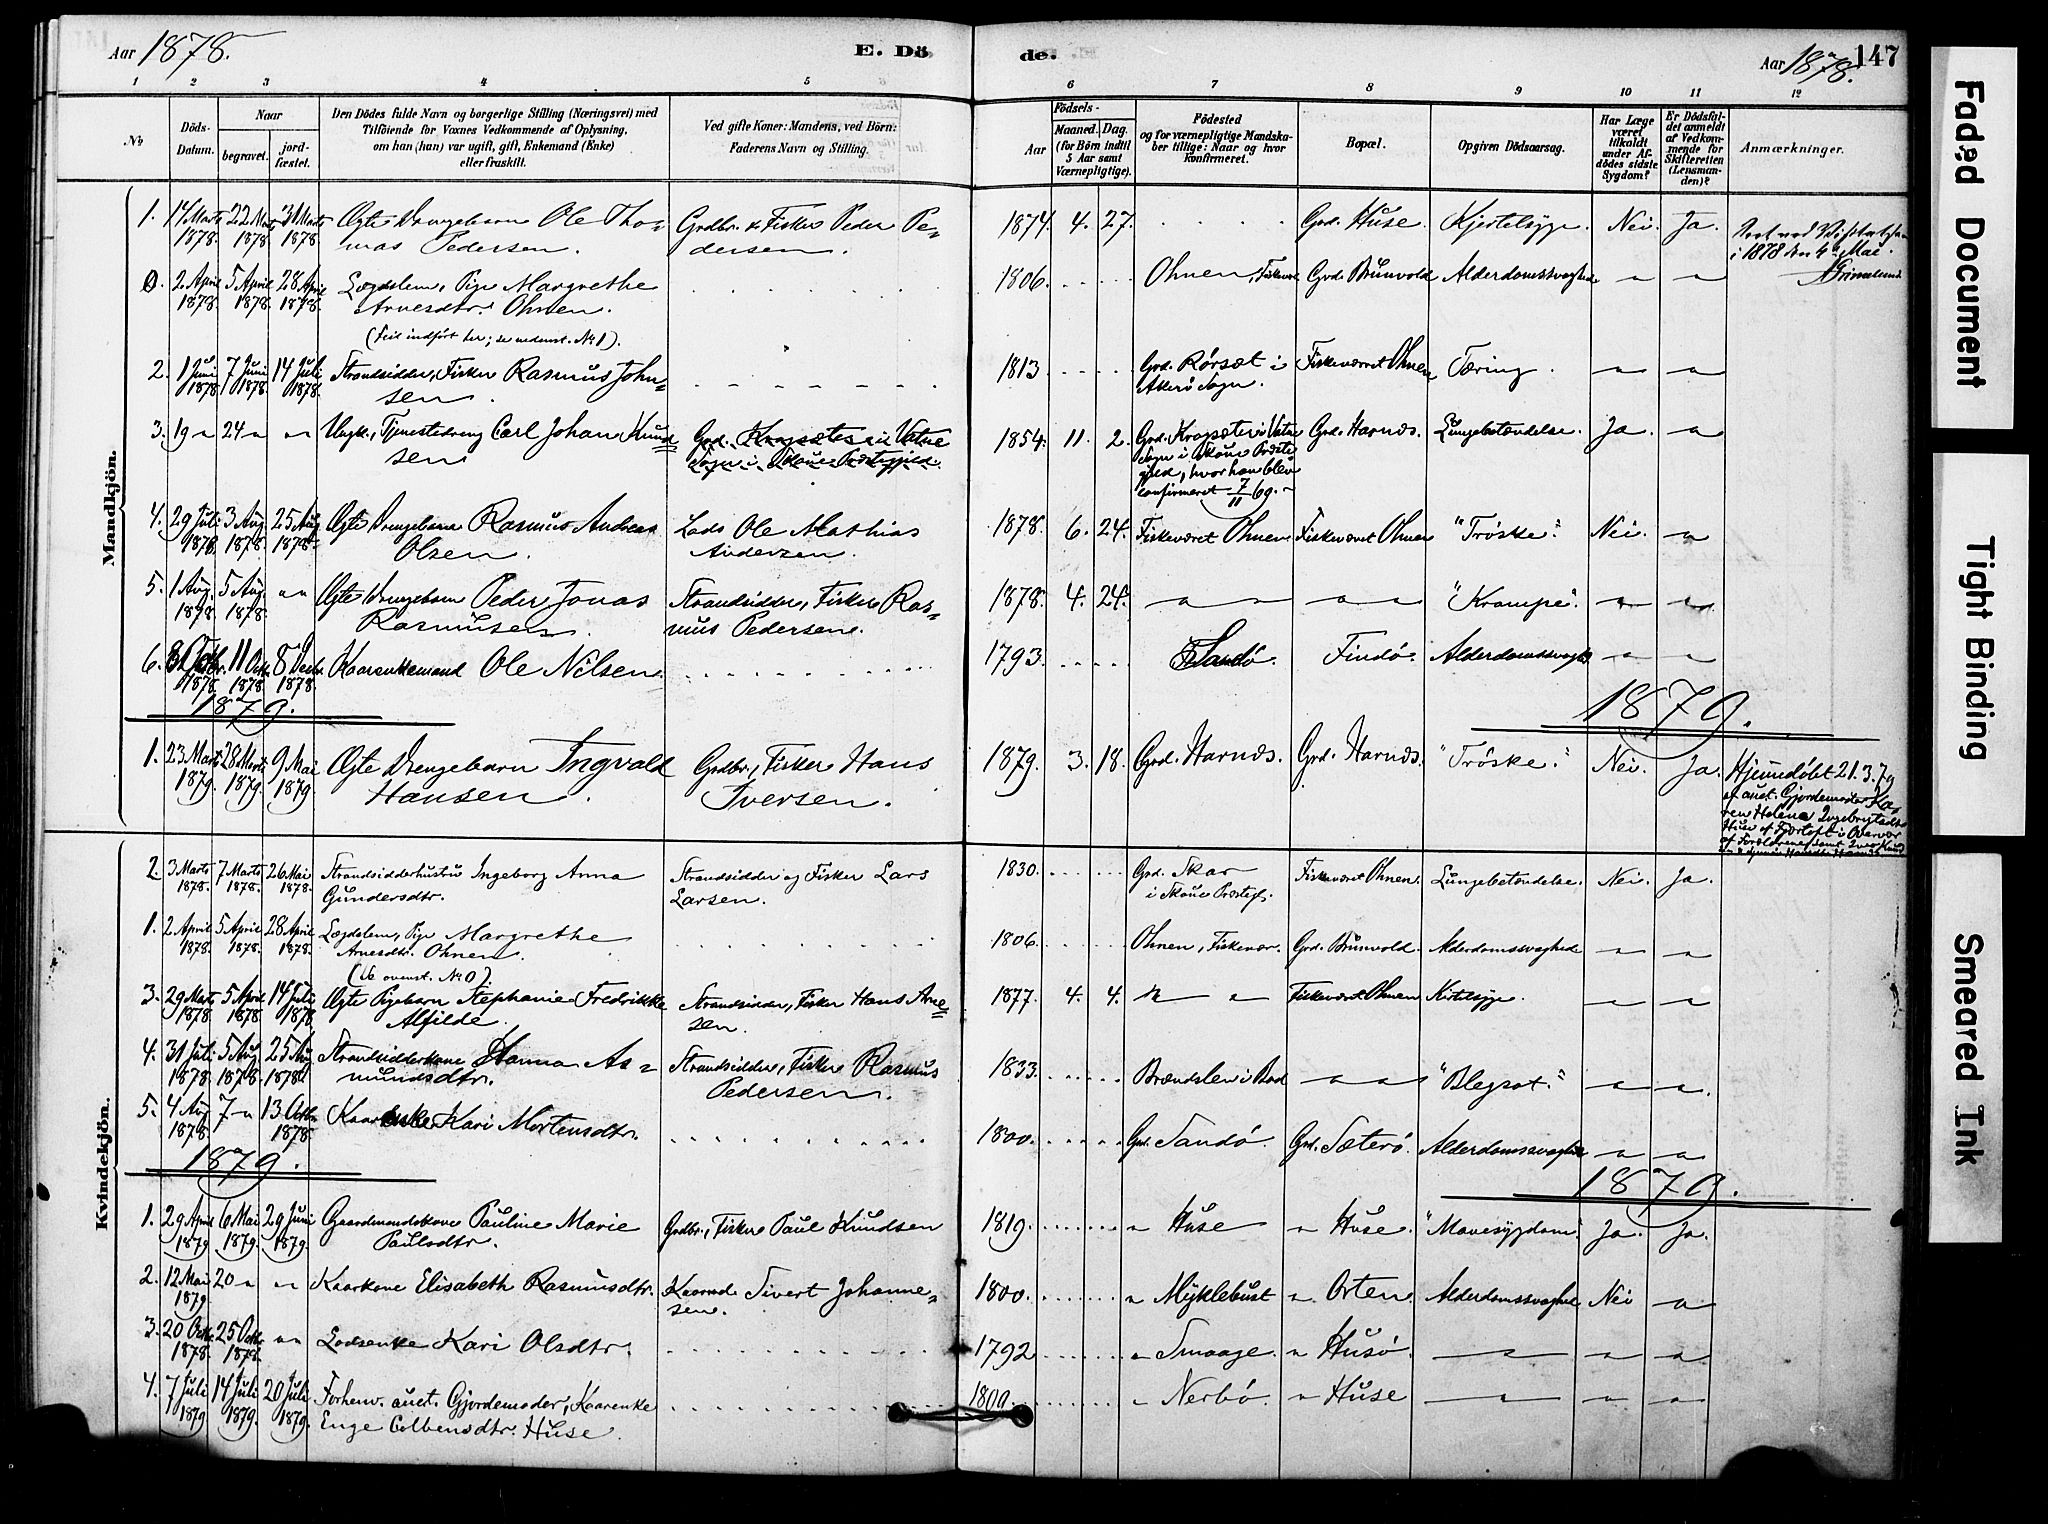 Aar 1878.
E. Dö
de.
Aar 1878.
147
1 2 3 4 5 6 7 8 9 10 11 12
No
Döds-Datum.
Naar
begravet.
jord-fæstet.
Den Dödes fulde Navn og borgerlige Stilling (Næringsvei) med
Tilföiende for Voxnes Vedkommende af Oplysning,
om han (hun) var ugift, gift, Enkemand (Enke)
eller fraskilt.
Ved gifte Koner: Mandens, ved Börn:
Faderens Navn og Stilling.
Födsels-
Aar
Maaned. Dag.
(for Börn indtil
5 Aar samt
Værnepligtige).
Födested
og for værnepligtige Mandska-
ber tillige: Naar og hvor
Konfirmeret.
Bopæl.
Opgiven Dödsaarsag.
Har Læge
været
tilkaldt
under Af-
dödes sidste
Sygdom?
Er Dödsfal-
det anmeldt
af Vedkom-
mende for
Skifteretten
(Lensman-
den)?
Anmærkninger.
Mandkjön.
1. 14 Marts 1878. 22 Marts 1878 31 Marts 1878 Ægte Drengebarn Ole Tho-
mas Pedersen. Grdbr. & Fisker Peder Pe-
dersen. 1874. 4. 27. Grd. Huse. Kjertelsyge. Nei. Ja.
i 1878 den 4de Mai.
0. 2 April 1878. 5 April 1878. 28 April 1878. Lægdslem, Pige Margrethe
Arnesdtr. Ohnen. 1806. Ohnen, Fiskevær Grd. Brunvold Alderdomssvaghed " "
(Feil indført her; se nedenst. No 1).
2. 1 Juni 1878. 7 Juni 1878. 14 Juli 1878. Strandsidder, Fisker Rasmus John=
sen. 1813. Grd. Rørsæt i
Akerø Sogn. Fiskeværet Ohnen Tæring. " "
3. 19 " 24 " " Ungk., Tjenestedreng Carl Johan Knud
sen Grd. Kragsæter i Vatne
Sogn i Skoue Præstegjeld. 1854. 11. 2. Grd. Kragsæter i Vatne
Sogn i Skoue Præste
gjeld, hvor han blev
confirmeret 7/11 69. Grd. Harnæs. Lungebetændelse. Ja. "
4. 29 Juli 1878. 3 Aug. 1878. 25 Aug. 1878. Ægte Drengebarn Rasmus Andreas
Olsen. Lods Ole Mathias
Andersen. 1878. 6. 24. Fiskeværet Ohnen Fiskeværet Ohnen "Trøske". Nei. "
5. 1 Aug. 1878. 5 Aug. 1878. " " Ægte Drengebarn Peder Jonas
Rasmusen. Strandsidder, Fisker Ras-
mus Pedersen. 1878. 4. 24. " " " " "Krampe". " "
6. 1878. 11 Octbr. 1878. 8 Decbr. 1878. Kaarenkemand Ole Nilsen. 1793. Sandø. Findø. Alderdomssvaghed " "
1879. 1879.
1. 23 Marts 1879. 28 Marts 1879. 9 Mai 1879 Ægte Drengebarn Ingvald
Hansen. Grdbr., Fisker Hans
Iversen. 1879. 3. 18. Grd. Harnæs. Grd. Harnæs. "Trøske". Nei. Ja. Hjemdøbt 21.3.79
af auct. Gjordemoder Ka-
ren Helena
Kvindekjön.
2. 3 Marts 1878. 7 Marts 1878. 26 Mai 1878. Strandsidderhustru Ingeborg Anna
Gundersdtr. Strandsidder og Fisker Lars
Larsen. 1830. Grd. Skar
i Skoue Præstegj. Fiskeværet Ohnen. Lungebetændelse. Nei. Ja.
1. 2 April 1878. 5 April 1878. 28 April 1878. Lægdslem, Pige Margrethe
Arnesdtr. Ohnen. 1806. Ohnen, Fiskevær. Grd. Brunvold. Alderdomssvaghed " "
(Se ovenst. No 0).
3. 29 Marts 1878 5 April 1878 14 Juli 1878 Ægte Pigebarn Stephanie Fredrikke
Alfilde. Strandsidder, Fisker Hans Arne=
sen. 1877. 4. 4. " " Fiskeværet Ohnen Kirtelsyge. " "
4. 31 Juli 1878. 5 Aug. 1878. 25 Aug 1878. Strandsidderkone Hanna As=
mundsdtr. Strandsidder, Fisker Rasmus
Pedersen. 1833. Brændslen i Bod " " "Blegsot." " "
5. 4 Aug 1878. 7 " 13 Octbr. 1878. Kaarenke Kari Mortensdtr. 1800. Grd. Sandø. Grd. Sæterø. Alderdomssvaghed " "
1879. 1879.
1. 29 April 1879 6 Mai 1879. 29 Juni 1879. Gaardmandskone Pauline Marie
Paulsdtr. Grdbr., Fisker Paul Knudsen 1819. " Huse " Huse. "Mavesygdom". Ja. Ja.
2. 12 Mai 1879. 20 " " Kaarkone Elisabeth Rasmusdtr. Kaarmd. Sivert Johanne=
sen. 1800. " Myklebust " Orten. Alderdomssvaghed Nei "
3. 20 Octbr. 1878. 25 Octbr. 1878. " " Lodsenke Kari Olsdtr. 1792 " Smaage. " Husø. " " "
4. 7 Juli 1879 14 Juli 1879. 20 Juli 1879. Forhenv. auct. Gjordemoder, Kaarenke
Enge Colbensdtr. Huse. 1809. " Nerbø. " Huse " " "
Faded Document
Tight Binding
Smeared Ink